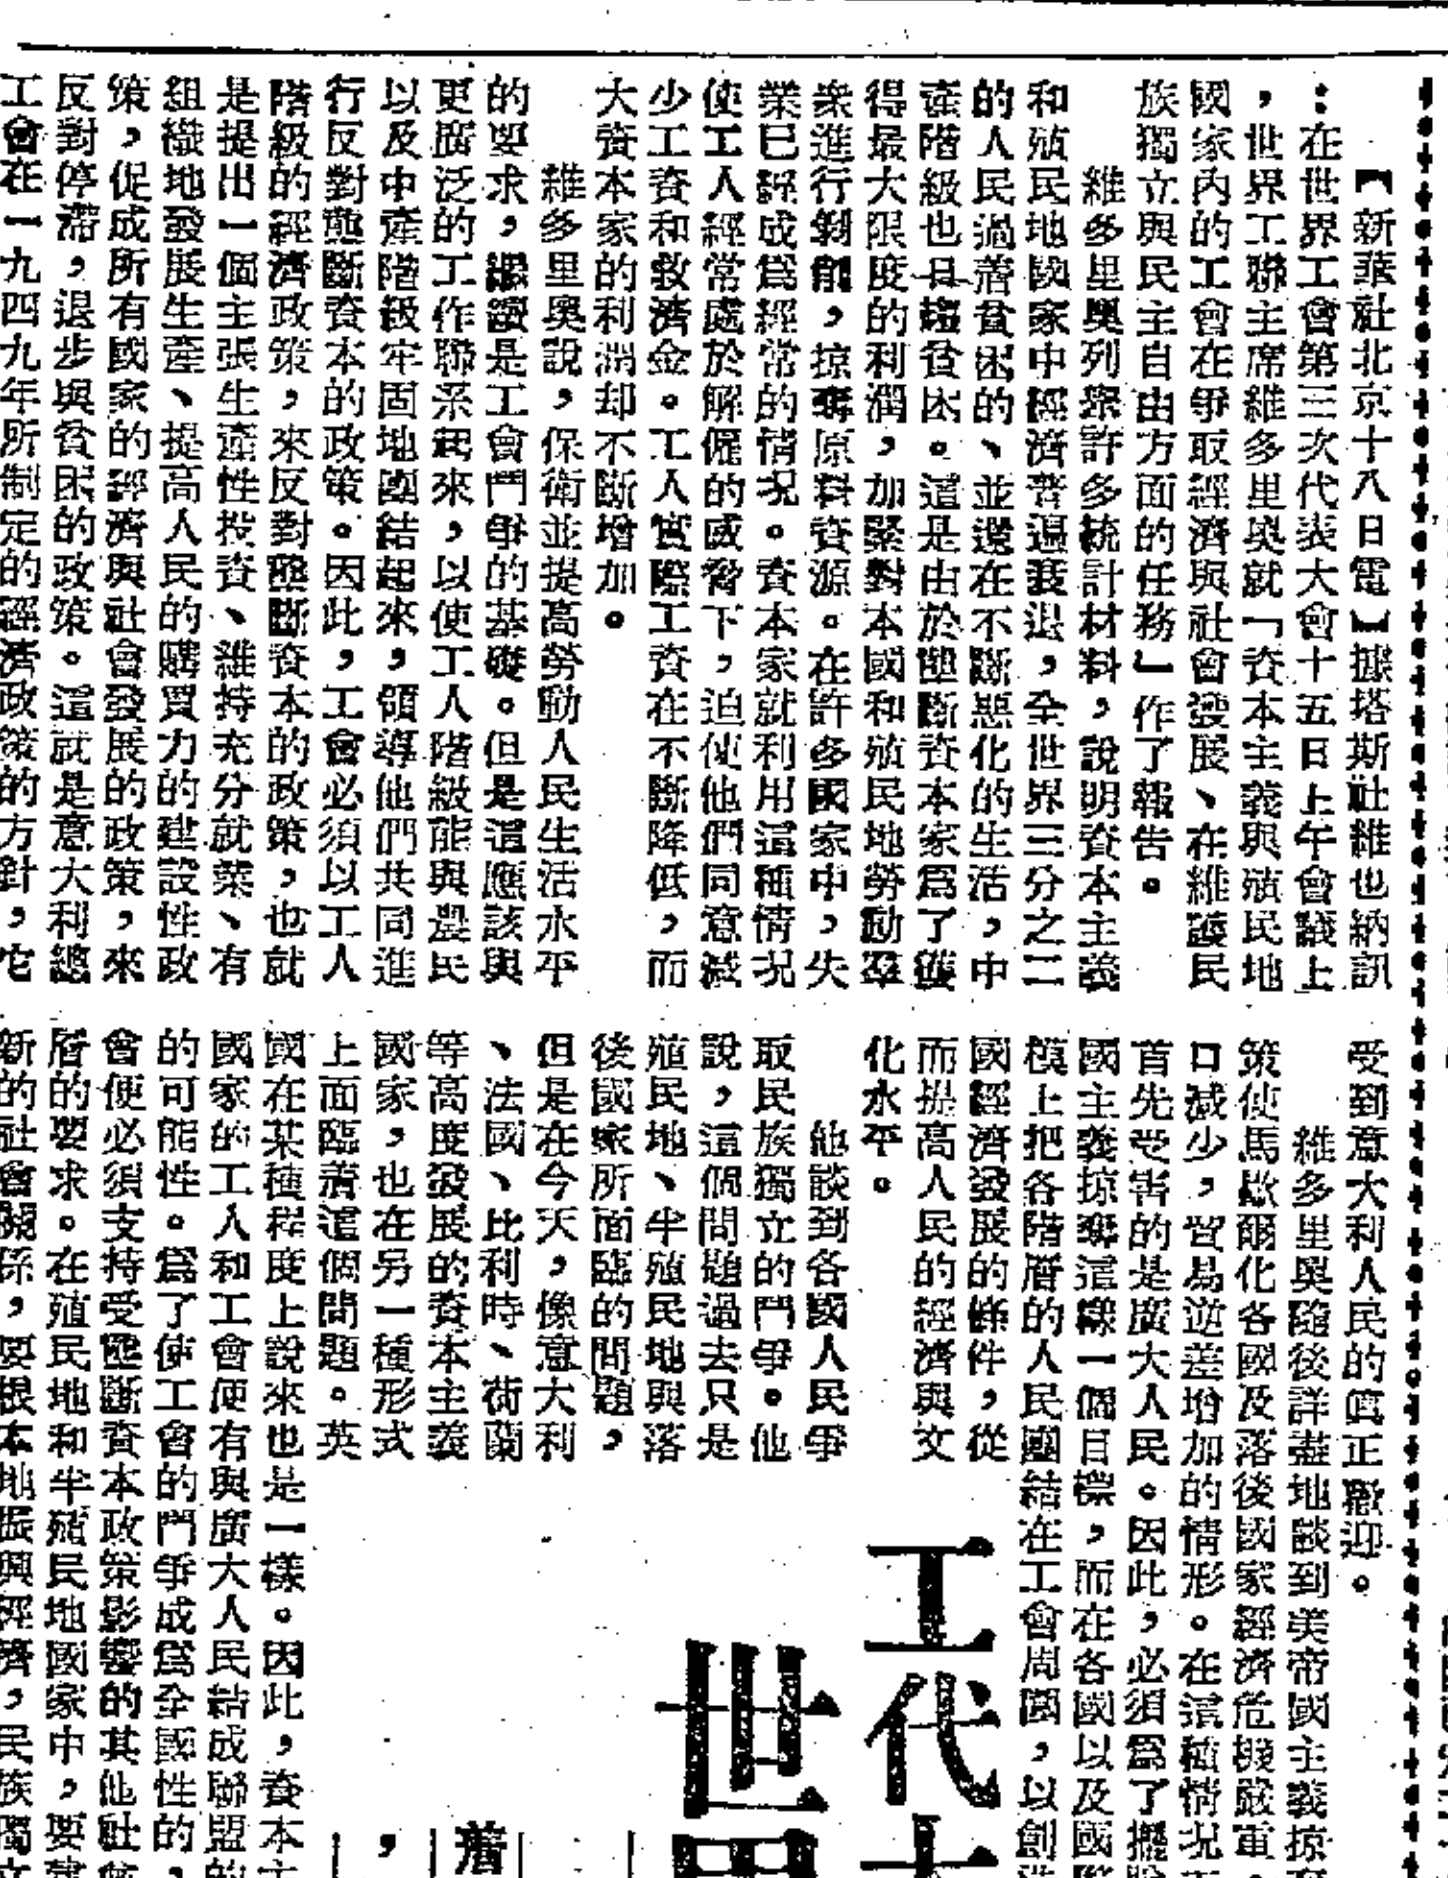 【新華社北京十八日電】據塔斯社維也納訊
：在世界工會第三次代表大會十五日上午會議上
，世界工聯主席維多里奧就「資本主義與殖民地
國家內的工會在爭取經濟與社會發展、在維護民
族獨立與民主自由方面的任務」作了報告。
維多里奧列舉許多統計材料，說明資本主義
和殖民地國家中經濟普遍衰退，全世界三分之二
的人民過着貧困的、並還在不斷惡化的生活，中
產階級也日趨貧困。這是由於壟斷資本家爲了獲
得最大限度的利潤，加緊對本國和殖民地勞動羣
衆進行剝削，掠奪原料資源。在許多國家中，失
業已經成爲經常的情況。資本家就利用這種情況
使工人經常處於解僱的威脅下，迫使他們同意減
少工資和救濟金。工人實際工資在不斷降低，而
大資本家的利潤却不斷增加。
維多里奧說，保衛並提高勞動人民生活水平
的要求，繼續是工會鬥爭的基礎。但是這應該與
更廣泛的工作聯系起來，以使工人階級能與農民
以及中產階級牢固地團結起來，領導他們共同進
行反對壟斷資本的政策。因此，工會必須以工人
階級的經濟政策，來反對壟斷資本的政策，也就
是提出一個主張生產性投資、維持充分就業、有
組織地發展生產、提高人民的購買力的建設性政
策，促成所有國家的經濟與社會發展的政策，來
反對停滯，退步與貧困的政策。這就是意大利總
工會在一九四九年所制定的經濟政策的方針，它
受到意大利人民的真正歡迎。
維多里奧隨後詳盡地談到美帝國主義掠奪
策使馬歇爾化各國及落後國家經濟危機嚴重，
口減少，貿易逆差增加的情形。在這種情況下
首先受害的是廣大人民。因此，必須爲了擺脫
國主義掠奪這樣一個目標，而在各國以及國際
模上把各階層的人民團結在工會周圍，以創造
國經濟發展的條件，從
而提高人民的經濟與文
化水平。
他談到各國人民爭
取民族獨立的鬥爭。他
說，這個問題過去只是
殖民地、半殖民地與落
後國家所面臨的問題，
但是在今天，像意大利
、法國、比利時、荷蘭
等高度發展的資本主義
國家，也在另一種形式
上面臨着這個問題。英
國在某種程度上說來也是一樣。因此，資本主
國家的工人和工會便有與廣大人民結成聯盟的
的可能性。爲了使工會的鬥爭成爲全國性的，
會便必須支持受壟斷資本政策影響的其他社會
層的要求。在殖民地和半殖民地國家中，要建
新的社會關係，要根本地振興經濟，民族獨立
工代
世
着
，